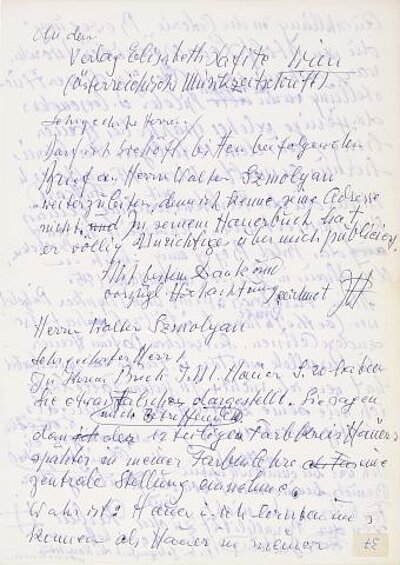 An den
Verlag Elisabeth Lafite Wien
(Österreichische Musikzeitschrift)
Sehr geehrte Herren!
Darf ich Sie höfl. bitten beifolgenden
Brief an Herrn Walter Szmolyan
weiterzuleiten, denn ich kenne seine Adresse
nicht, und In seinem Hauerbuch hat
er völlig Unrichtiges über mich publiziert.
Mit bestem Dank und
vorzügl. Hochachtung zeichnet
Herrn Walter Szmolyan
Sehr geehrter Herr!
In Ihrem Buch J. M. Hauer S. 20 haben
Sie etwas falsches dargestellt. Sie sagen
mich Betreffendes
dass ich den 12 teiligen Farbkreis Hauers
später in meiner Farbenlehre eine
zentrale Stellung einnehme.
Wahr ist: Hauer u. ich lernten uns
kennen als Hauer in meiner
37